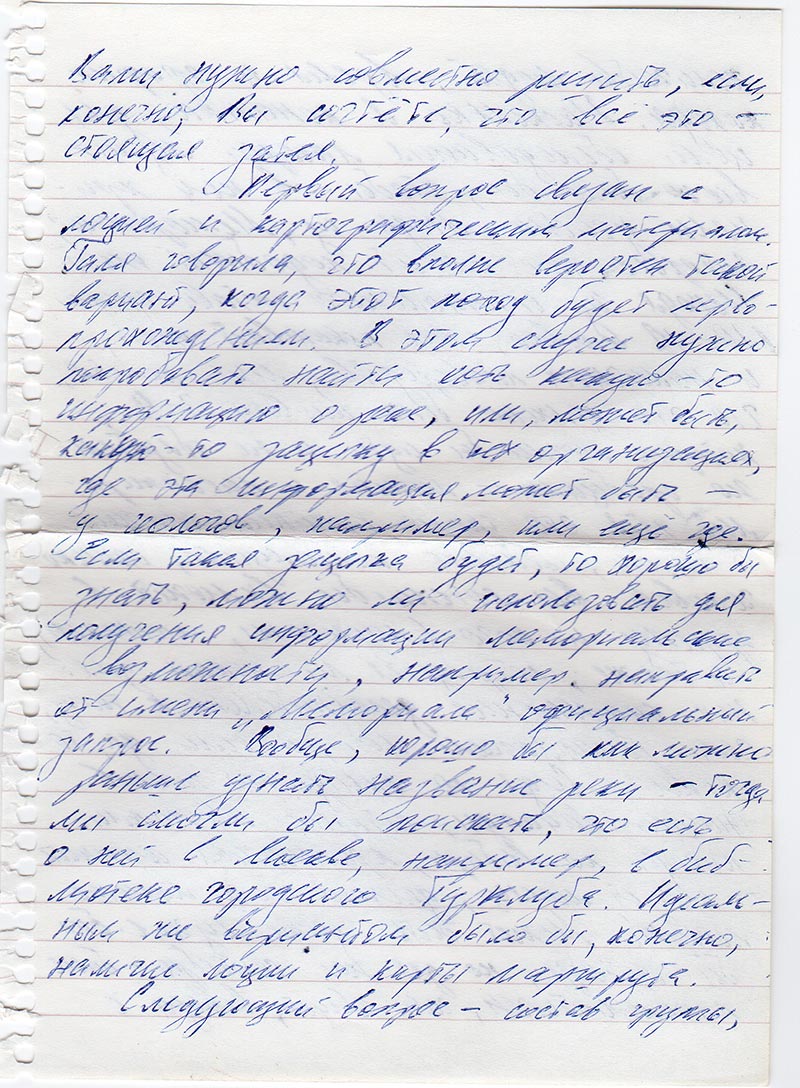 Вами нужно совместно решить, если,
конечно, Вы сочтёте, что всё это –
стоящая затея.
Первый вопрос связан с
лоцией и картографическим материалом.
Галя говорила, что вполне вероятен такой
вариант, когда этот поход будет перво-
прохождением. В этом случае нужно
попробовать найти хоть какую-то
информацию о реке, или, может быть,
какую-то зацепку в тех организациях,
где эта информация может быть –
у геологов, например, или ещё где.
Если такая зацепка будет, то хорошо бы
знать, можно ли использовать для
получения информации мемориальские
возможности, например, направить
от имени „Мемориала" официальный
запрос. Вообще, хорошо бы как можно
раньше узнать название реки – тогда
мы смогли бы поискать, что есть
о ней в Москве, например, в биб-
лиотеке городского Турклуба. Идеаль-
ным же вариантом было бы, конечно,
наличие лоции и карты маршрута.
Следующий вопрос – состав группы,